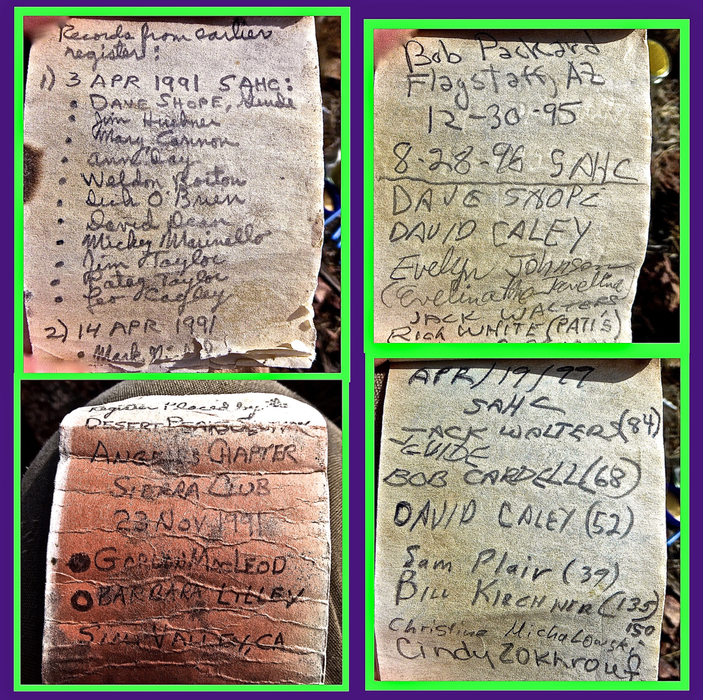 Records from earlier
register:
1) 3 APR 1991 SAHC:
• DAVE SHOPE, Guide
• Jim Huebner
• Mary Cannon
• Ann Day
• Weldon
• Dick O'Brien
• David Dean
• Mickey Marinello
• Jim Taylor
• Patey Taylor
• Cagley
2) 14 APR 1991
• Mark
Bob Packard
Flagstaff, AZ
12-30-95
8-28-96 SAHC
DAVE SHOPE
DAVID CALEY
Evelyn Johnson
JACK WALTERS
Rich WHITE (PATI'S)
Register Placed by the
DESERT PEAKS SECTION
ANGELES CHAPTER
SIERRA CLUB
23 NOV 1991
GORDON MacLEOD
BARBARA LILLEY
SIMI VALLEY, CA
APR/19/99
SAHC
JACK WALTERS (84)
GUIDE
BOB CARDELL (68)
DAVID CALEY (52)
Sam Plair (39)
BILL KIRCHNER (135)
150
Christine Michalowski
Cindy